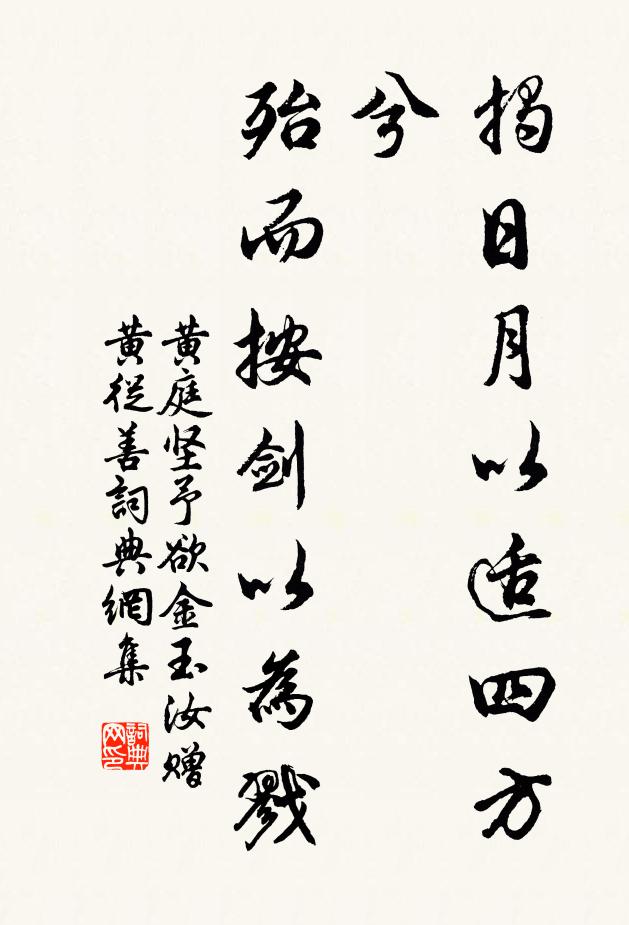 揭日月以适四方
兮
殆而按剑以為戮
黄庭坚予欲金玉汝赠
黄從善詞典網集
詞典网印